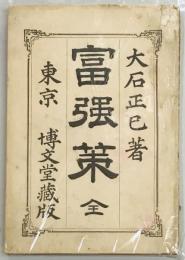 大石正巳著
富强策 全
東京 博文堂藏版